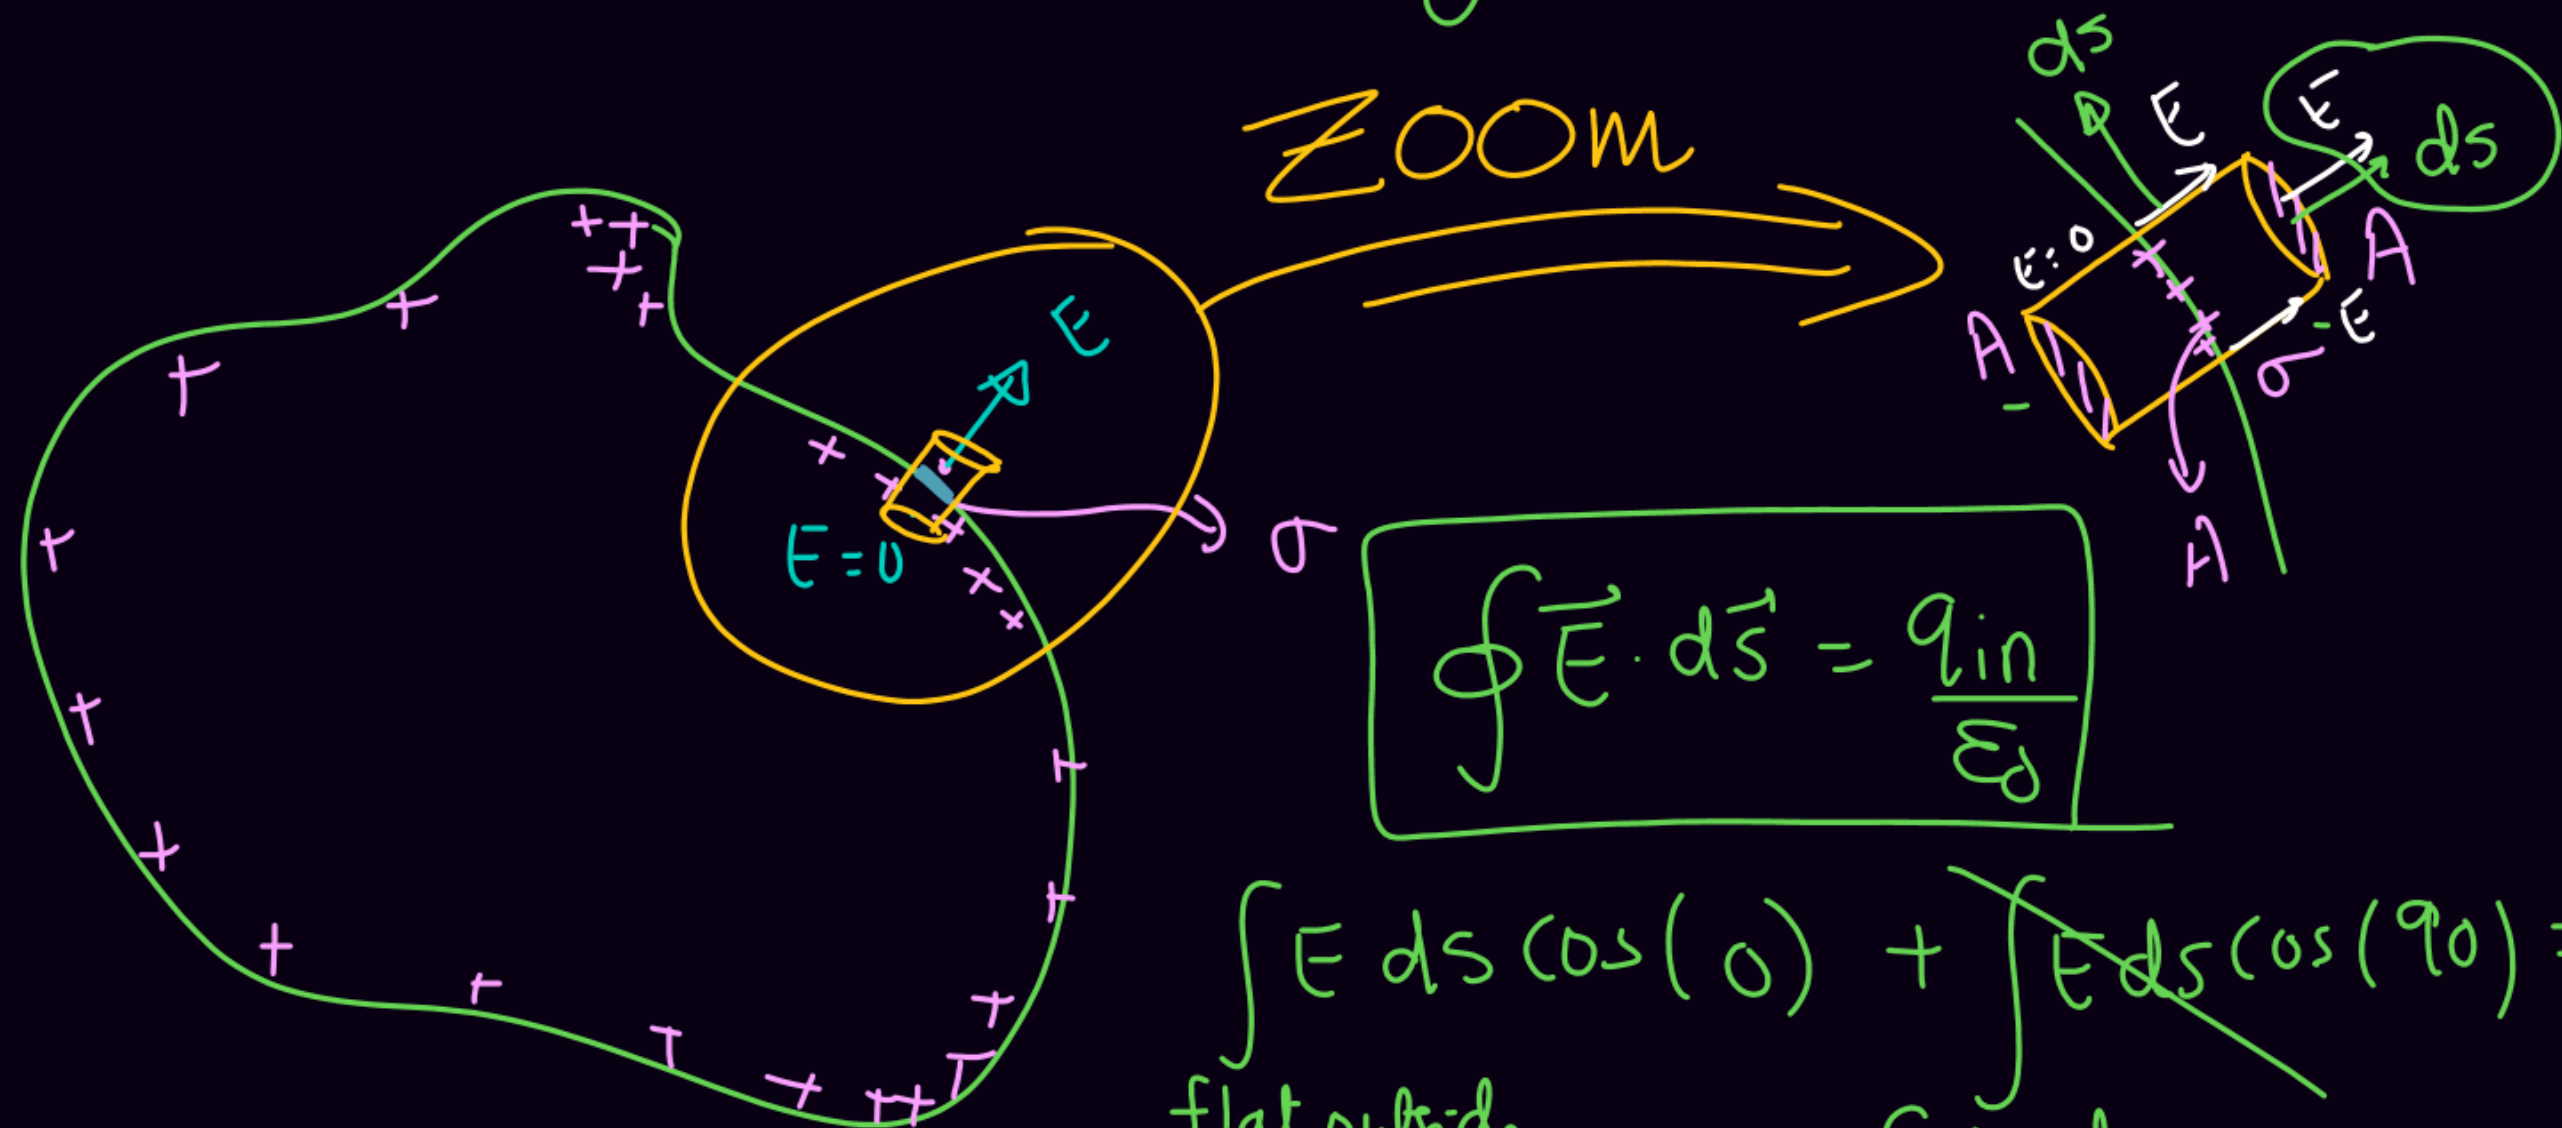 ZOOM
ds
E
E
ds
E:0
A
A
E
σ
A
E
E=0
σ
∮ E⃗ · ds⃗ = qin/ε0
∫ E ds cos(0) + ∫ E ds cos(90) =
flat